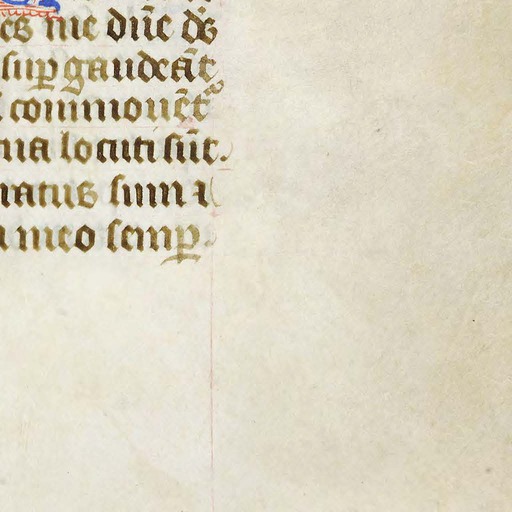 es me dn̄e ds̄
sup̱ gaudeāt
commouēt᷑
na locuti sūt.
natus sum ı
a meo semp̱.